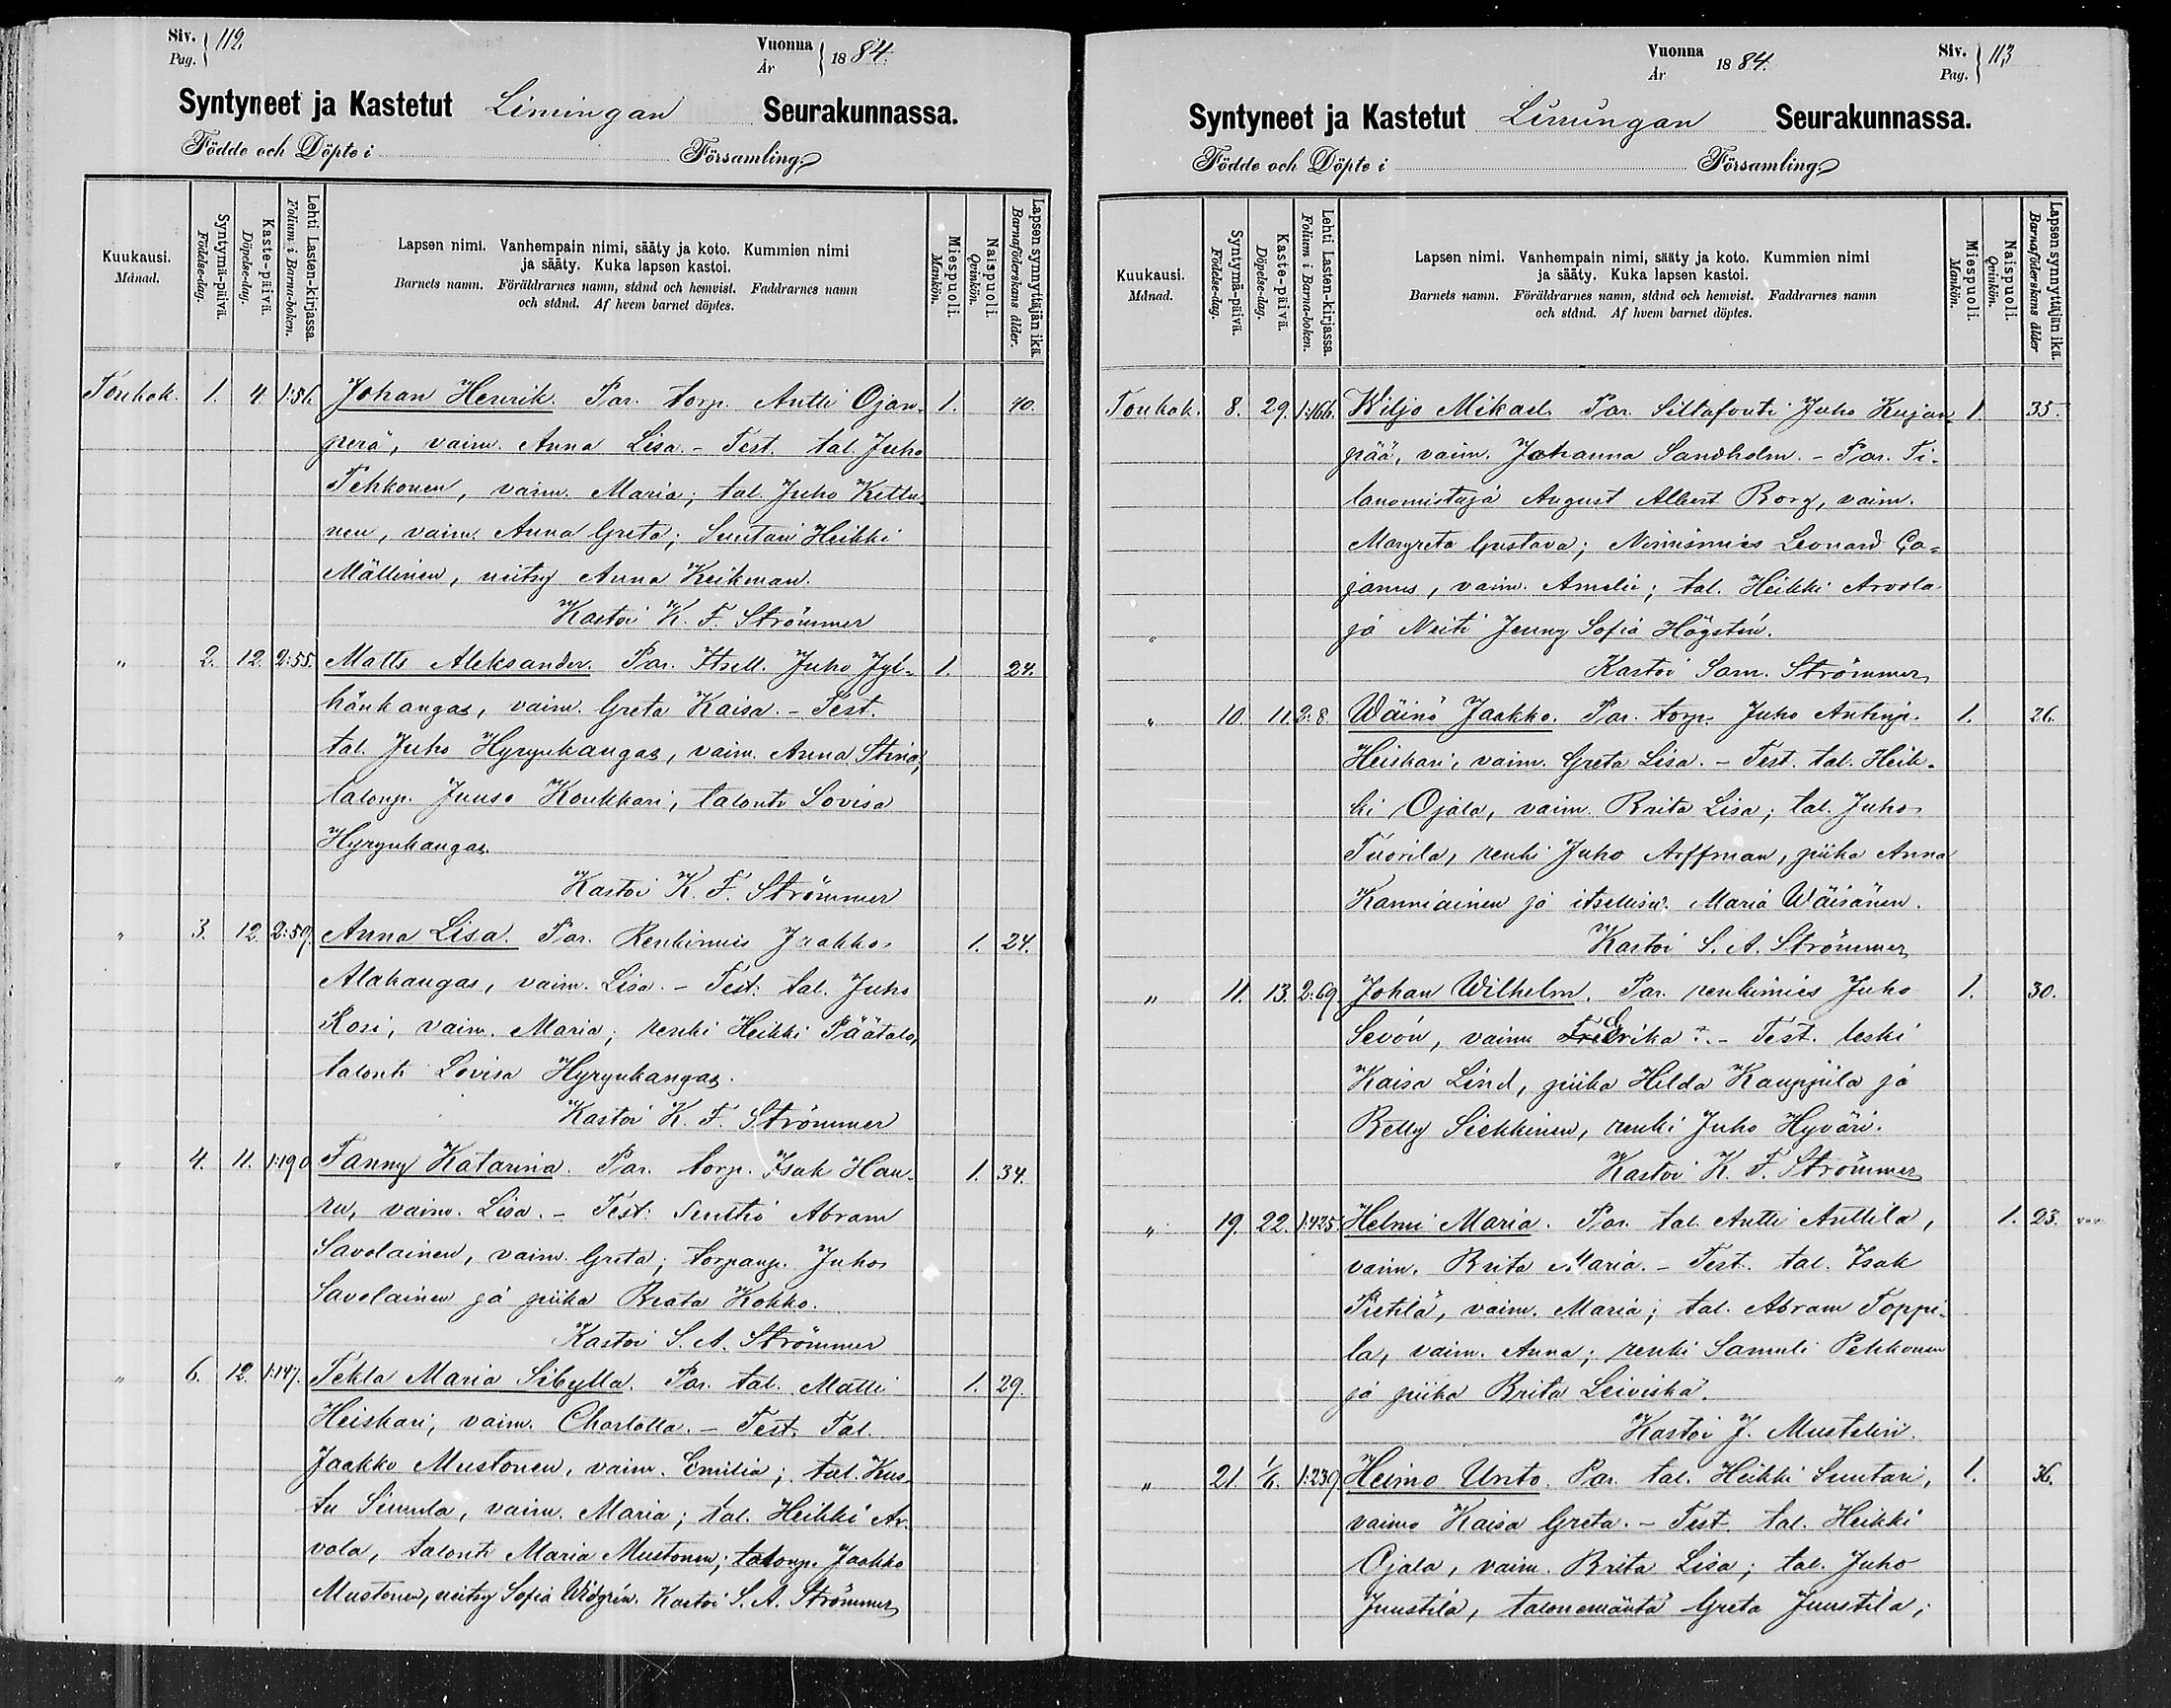 Siv. 112.
Pag.
Vuonna 1884.
År
Syntyneet ja Kastetut Limingan Seurakunnassa.
Födde och Döpte i Församling.
Kuukausi.
Månad.
Syntymä-päivä.
Födelse-dag.
Kaste-päivä.
Döpelse-dag.
Lehti Lasten-kirjassa.
Folium i Barna-boken.
Lapsen nimi. Vanhempain nimi, sääty ja koto. Kummien nimi
ja sääty. Kuka lapsen kastoi.
Barnets namn. Föräldrarnes namn, stånd och hemvist. Faddrarnes namn
och stånd. Af hvem barnet döptes.
Miespuoli.
Mankön.
Naispuoli.
Qvinkön.
Lapsen synnyttäjän ikä.
Barnaföderskans ålder.
Toukok. 1. 4. 1:56. Johan Henrik. Par. torp. Antti Ojan- 1. 40.
perä, vaim. Anna Lisa. - Test. tal. Juho
Pehkonen, vaim. Maria; tal. Juho Kettu-
nen, vaim. Anna Greta; Suutari Heikki
Mällinen, neitsy Anna Keikman.
Kastoi K. F. Strömmer
" 2. 12. 2:55. Matts Aleksander. Par. Itsell. Juho Jyl- 1. 24.
hänkangas, vaim. Greta Kaisa. - Test.
tal. Juho Hyrynkangas, vaim. Anna Stina;
talonp. Juuso Koukkari, talontr Lovisa
Hyrynkangas.
Kastoi K. F. Strömmer
" 3. 12. 2:59. Anna Lisa. Par. Renkimies Jaakko 1. 24.
Alakangas, vaim. Lisa. - Test: tal. Juho
Rosi, vaim. Maria; renki Heikki Päätalo,
talontr Lovisa Hyrynkangas.
Kastoi K. F. Strömmer
" 4. 11. 1:190 Fanny Katarina. Par. torp. Isak Hau- 1. 34.
ru, vaim. Lisa. - Test: Seuthi Abram
Savolainen, vaim. Greta; torpanp. Juho
Savolainen ja piika Beata Kokko.
Kastoi S. A. Strömmer
" 6. 12. 1:147. Tekla Maria Sibylla. Par. tal. Matti 1. 29.
Heiskari, vaim. Charlotta. - Test. Tal.
Jaakko Mustonen, vaim. Emilia; tal. Kus-
tu Simula, vaim. Maria; tal. Heikki Ar-
vola, talontr Maria Mustonen; talonp. Jaakko
Mustonen, neitsy Sofia Widgrén. Kastoi S. A. Strömmer
Vuonna 1884.
År
Siv. 113
Pag.
Syntyneet ja Kastetut Limingan Seurakunnassa.
Födde och Döpte i Församling.
Kuukausi.
Månad.
Syntymä-päivä.
Födelse-dag.
Kaste-päivä.
Döpelse-dag.
Lehti Lasten-kirjassa.
Folium i Barna-boken.
Lapsen nimi. Vanhempain nimi, sääty ja koto. Kummien nimi
ja sääty. Kuka lapsen kastoi.
Barnets namn. Föräldrarnes namn, stånd och hemvist. Faddrarnes namn
och stånd. Af hvem barnet döptes.
Miespuoli.
Mankön.
Naispuoli.
Qvinkön.
Lapsen synnyttäjän ikä.
Barnaföderskans ålder
Toukok. 8. 29. 1:166. Wiljo Mikael. Par. Siltafouti Juho Kujan- 1. 35.
pää, vaim. Johanna Sandholm. - Par. Ti-
lanomistaja August Albert Borg, vaim.
Margreta Gustava; Nimismies Leonard Ca-
janus, vaim. Amalie; tal. Heikki Arvola
ja Neiti Jenny Sofia Högstén.
Kastoi Sam. Strömmer
" 10. 11. 2:8. Wäinö Jaakko. Par. torp. Juho Antinp. 1. 26.
Heiskari, vaim. Greta Lisa. - Test. tal. Heik-
ki Ojala, vaim. Brita Lisa; tal. Juho
Tuorila, renki Juho Arffman, piika Anna
Kanniainen ja itsellisn. Maria Wäisänen.
Kastoi S. A. Strömmer
" 11. 13. 2:69 Johan Wilhelm. Par. renkimies Juho 1. 30.
Sevón, vaim Fredrika?. - Test. leski
Kaisa Lind, piika Hilda Kauppila ja
Betty Siekkinen, renki Juho Hyväri.
Kastoi K. F. Strömmer
" 19. 22. 1:425. Helmi Maria. Par. tal. Antti Anttila, 1. 23.
vaim. Brita Maria. - Test. tal. Isak
Pietilä, vaim. Maria; tal. Abram Toppi-
la, vaim. Anna; renki Samuli Pehkonen
ja piika Brita Leiviskä.
Kastoi J. Mustelin.
" 21. 1/6. 1:239 Heimo Unto. Par. tal. Heikki Suutari, 1. 36.
vaimo Kaisa Greta. - Test. tal. Heikki
Ojala, vaim. Brita Lisa; tal. Juho
Juustila, talonemäntä Greta Juustila;